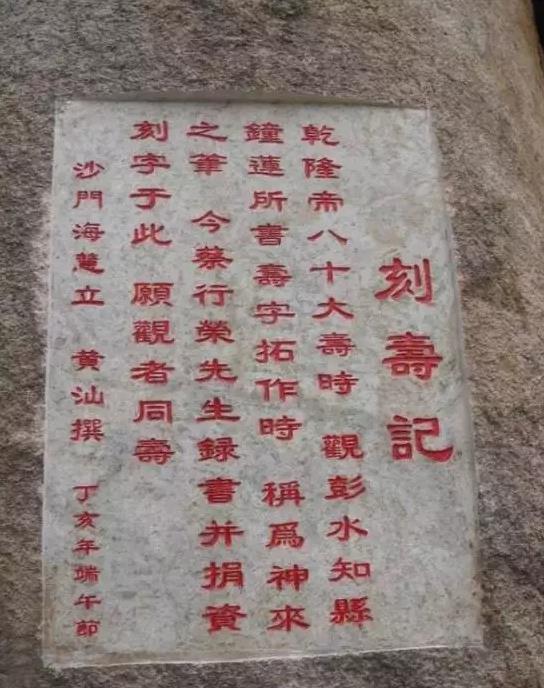 刻壽記
乾隆帝八十大壽時 觀彭水知縣
鐘蓮所書壽字拓作時 稱爲神來
之筆 今蔡行榮先生録書并捐資
刻字于此 願觀者同壽
沙門海慧立 黄汕撰 丁亥年端午節